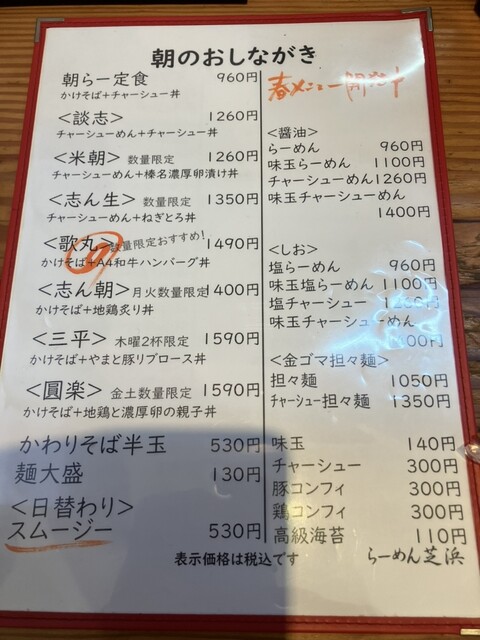 朝のおしながき
朝らー定食 960円
かけそば+チャーシュー丼
<談志> 1260円
チャーシューめん+チャーシュー丼
<米朝> 数量限定 1260円
チャーシューめん+榛名濃厚卵漬け丼
<志ん生> 数量限定 1350円
チャーシューめん+ねぎとろ丼
<歌丸>数量限定おすすめ! 1490円
かけそば+A4和牛ハンバーグ丼
<志ん朝>月火数量限定1400円
かけそば+地鶏炙り丼
<三平> 木曜2杯限定 1590円
かけそば+やまと豚リブロース丼
<圓楽> 金土数量限定 1590円
かけそば+地鶏と濃厚卵の親子丼
かわりそば半玉 530円
麺大盛 130円
<日替わり>
スムージー 530円
春メニュー開発中
<醤油>
らーめん 960円
味玉らーめん 1100円
チャーシューめん1260円
味玉チャーシューめん
1400円
<しお>
塩らーめん 960円
味玉塩らーめん 1100円
塩チャーシュー
味玉チャーシューめん
<金ゴマ担々麺>
担々麺 1050円
チャーシュー担々麺 1350円
味玉 140円
チャーシュー 300円
豚コンフィ 300円
鶏コンフィ 300円
高級海苔 110円
表示価格は税込です らーめん芝浜